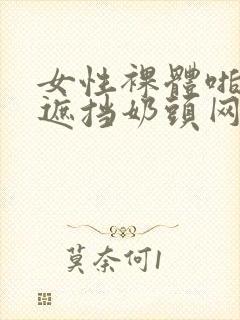 女性裸體啪
遮挡奶頭网
莫奈何1